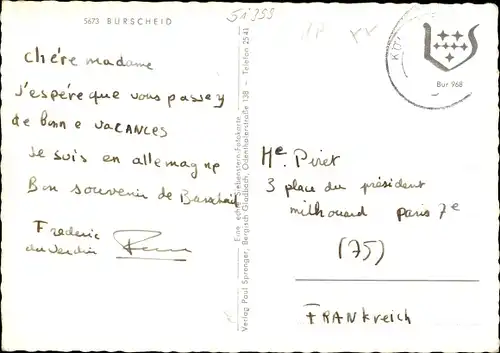 5673 BURSCHEID
51399
chére madame
j'espére que vous passey
de bonne vacances
Je suis en allemagne
Bon souvenir de Burscheid
Frederic
du verdin
Eine echte Siebenstern-Fotokarte
Verlag Paul Spranger, Bergisch Gladbach, Odenthalerstraße 138 - Telefon 25 41
KÖ
Bur 968
Me Piret
3 place du président
milhouard paris 7e
(75)
FRANKreich